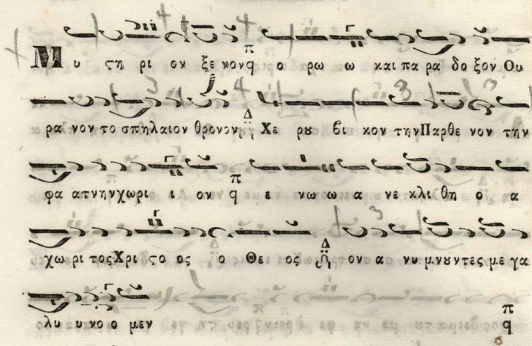 Μυ στη ρι ον ξε νον ο ρω ω και πα ρα δο ξον Ου
ρα νον το σπηλαιον θρονον Χε ρου βι κον την Παρθε νον την
φα ατνην χωρι ι ον ε νω ω α νε κλι θη ο α
χω ρι τος Χρι στο ος ο Θε ος ον α νυ μνουντες με γα
λυ υ νο ο μεν